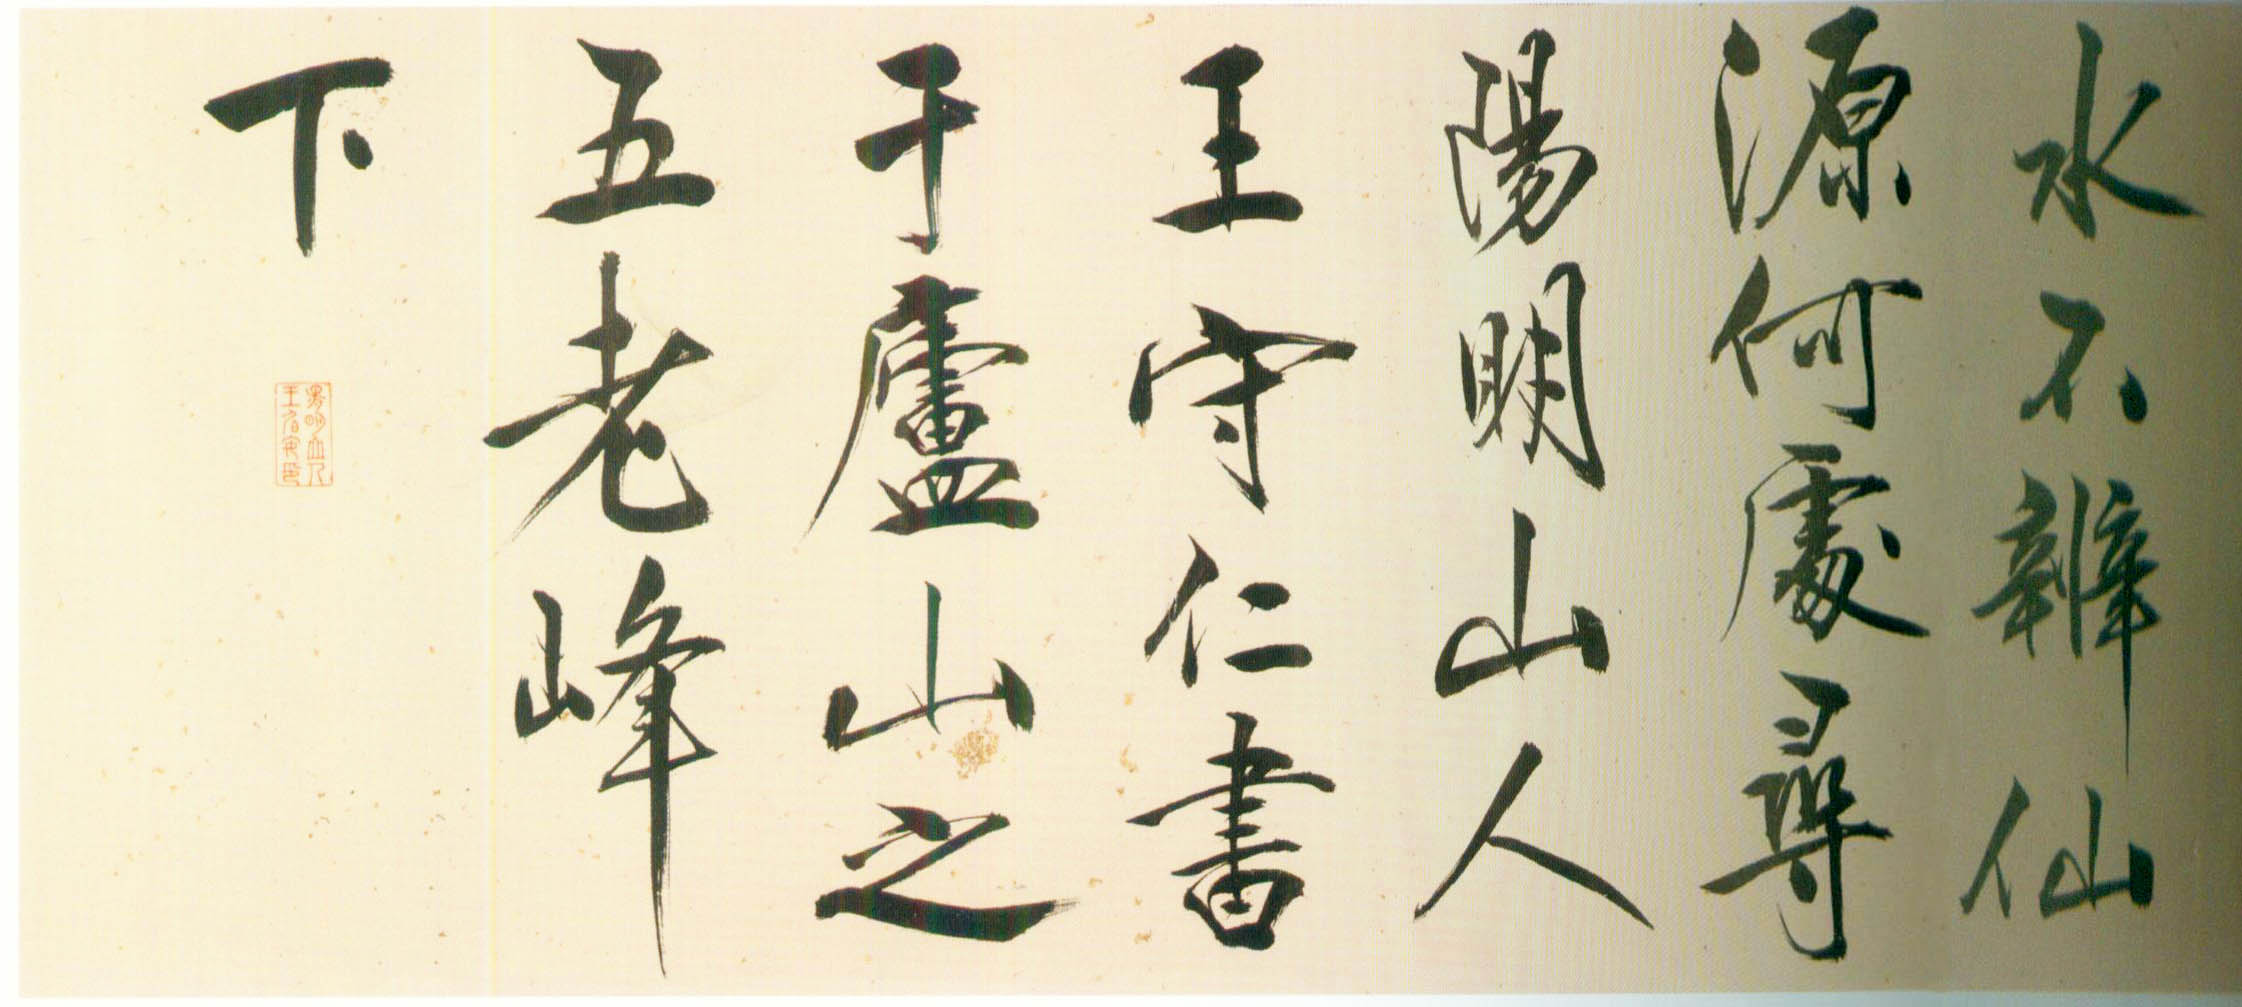 水不辨仙
源何處尋
陽明山人
王守仁書
于廬山之
五老峰
下
陽明山人
王守仁印